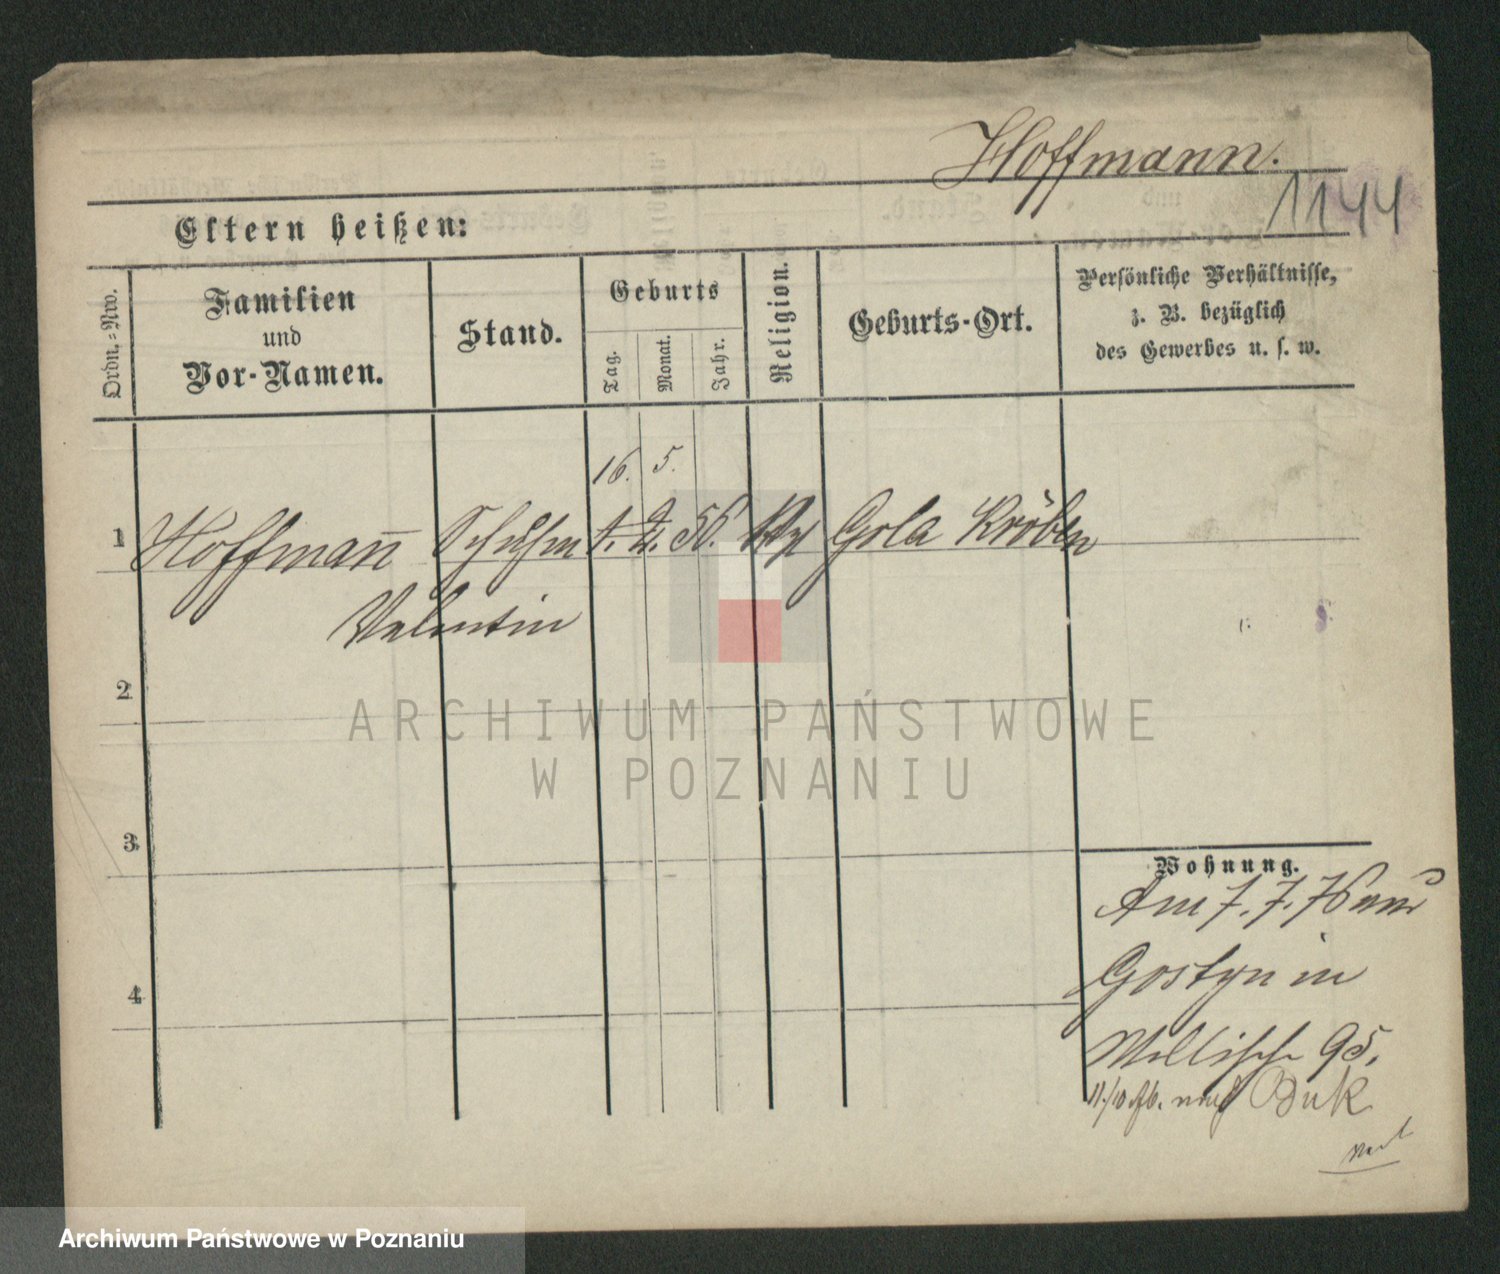 Hoffmann.
1144
Eltern heißen:
Ordn.-Nro.
Familien
und
Vor-Namen.
Stand.
Geburts
Tag.
Monat.
Jahr.
Religion.
Geburts-Ort.
Persönliche Verhältnisse,
z. B. bezüglich
des Gewerbes u. s. w.
16. 5.
1 Hoffmann̄ 56. Gola Kröben
Valentin
2
3
4
Wohnung.
Am 7. 7. 76 aus
Gostyn in
95.
11./10 nach Buk
ARCHIWUM PAŃSTWOWE
W POZNANIU
Archiwum Państwowe w Poznaniu